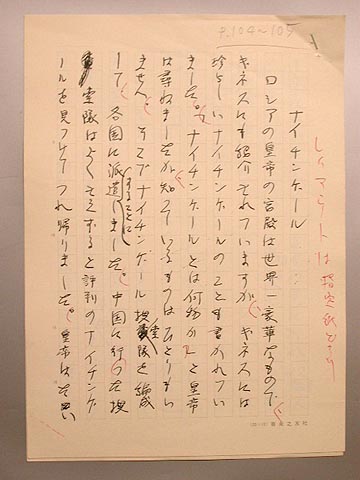 P.104~105
レイアウトは指定紙どおり
ナイチンゲール
ロシアの皇帝の宮殿は世界一豪華なもので
ギネスにも紹介されていますが、ギネスには
珍しいナイチンゲールのことも書かれてい
ました。ナイチンゲールとは何物か?と皇帝
は尋ねましたが知っているものはひとりもい
ません。そこでナイチンゲール捜索隊を編成
して、各国に派遣することにしました。中国に行った捜
索隊はよくさえずると評判のナイチンゲ
ールを見つけてつれ帰りました。皇帝は